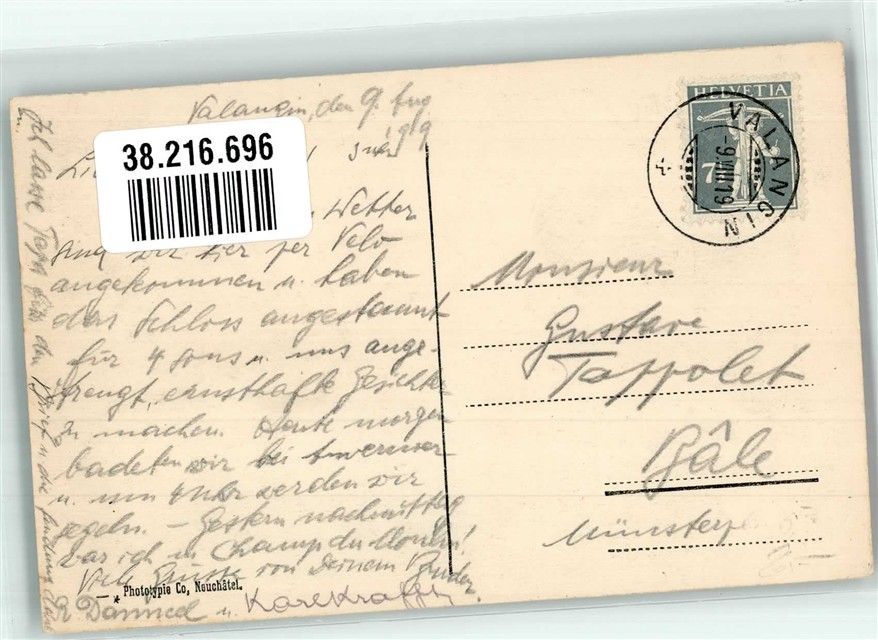 Valangin, den 9. Aug
1919
38.216.696
Wetter
sind wir hier per Velo
angekommen u. haben
das Schloss angestaunt
für 4 sous u. uns ange-
strengt, ernsthafte Gesichter
zu machen. Heute morgen
badeten wir bei
u. um 4 Uhr werden wir
segeln. – Gestern nachmittag
war ich in Champ du Moulin!
Viele Grüsse von Deinem Bruder
u.
Ich lasse Papa für den Brief u. die Sendung
* Phototypie Co, Neuchâtel.
HELVETIA
7½
VALANGIN
-9.VIII.19
Monsieur
Gustave
Tappolet
Bâle